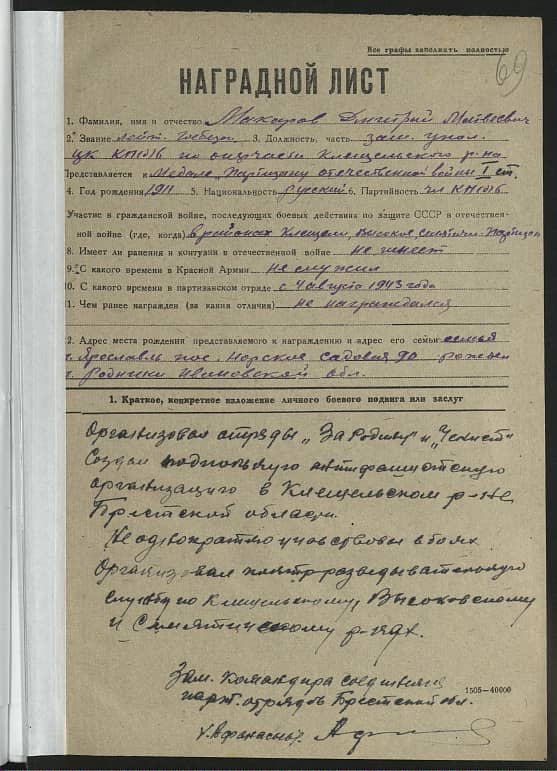 Все графы заполнять полностью
69
НАГРАДНОЙ ЛИСТ
1. Фамилия, имя и отчество Макаров Дмитрий Матвеевич
2. Звание лейт. госбезоп. 3. Должность, часть зам. упол.
ЦК КП(б)Б по Клещельского р-на
Представляется к Медале „Партизану отечественной войны" I ст.
4. Год рождения 1911 5. Национальность русский 6. Партийность чл КП(б)Б
Участие в гражданской войне, последующих боевых действиях по защите СССР и отечествен-
ной войне (где, когда) в районах Клещели, Высокое, Семятичи
8. Имеет ли ранения и контузии в отечественной войне не имеет
9. С какого времени в Красной Армии не служил
10. С какого времени в партизанском отряде с 4 августа 1943 года
11. Чем ранее награжден (за какия отличия) не награждался
2. Адрес места рождения представляемого к награждению и адрес его семьи семья
г. Ярославль пос. Норское садовая
г. Родники Ивановской обл.
1. Краткое, конкретное изложение личного боевого подвига или заслуг
Организовал отряды „За Родину" и „Чекист"
Создал подпольную антифашистскую
организацию в Клещельском р-не
Брестской области.
Неоднократно участвовал в боях
Организовал контрразведывательную
службу по Клещельскому, Высоковскому
и Семятическому р-нах.
Зам. Командира соединения
парт. отрядов Брестской обл.
1505—40000